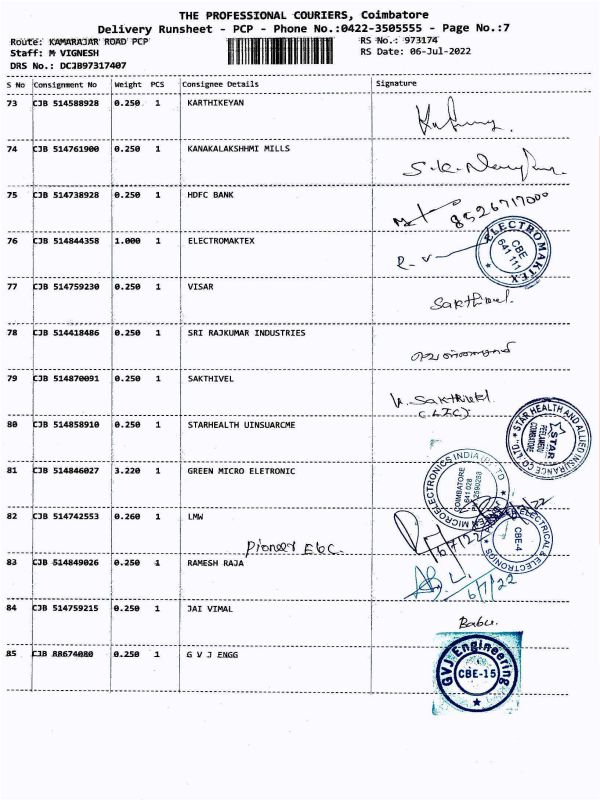 THE PROFESSIONAL COURIERS, Coimbatore
Delivery Runsheet - PCP - Phone No.:0422-3505555 - Page No.:7
Route: KAMARAJAR ROAD PCP
RS No.: 973174
Staff: M VIGNESH
RS Date: 06-Jul-2022
DRS No.: DCJB97317407
S No Consignment No Weight PCS Consignee Details Signature
73 CJB 514588928 0.250 1 KARTHIKEYAN
74 CJB 514761900 0.250 1 KANAKALAKSHHMI MILLS
75 CJB 514738928 0.250 1 HDFC BANK
8526717000
76 CJB 514844358 1.000 1 ELECTROMAKTEX
ELECTROMAKTEX CBE 641 111
77 CJB 514759230 0.250 1 VISAR
Sakthivel.
78 CJB 514418486 0.250 1 SRI RAJKUMAR INDUSTRIES
79 CJB 514870091 0.250 1 SAKTHIVEL
(LIC)
80 CJB 514858910 0.250 1 STARHEALTH UINSUARCME
STAR HEALTH AND ALLIED INSURANCE CO LTD. STAR PEELAMEDU COIMBATORE
81 CJB 514846027 3.220 1 GREEN MICRO ELETRONIC
GREEN MICROELECTRONICS INDIA (P) LTD COIMBATORE 641 028
82 CJB 514742553 0.260 1 LMW
Pioneer E&C.
6/7/22
ELECTRICAL & ELECTRONICS CBE-4
83 CJB 514849026 0.250 1 RAMESH RAJA
6/7/22
84 CJB 514759215 0.250 1 JAI VIMAL
Babu.
85 CJB 88674080 0.250 1 G V J ENGG
GVJ Engineering CBE-15